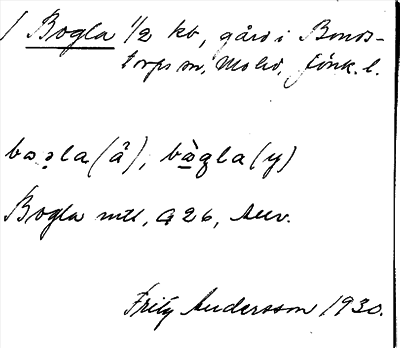 / Bogla 1/2 kb, gård i Bonds-
torps sn, Mo hd, Jönk. l.
bɔɔla (å), bògla (y)
Bogla mtl, G 26,
Fritz Andersson 1930.